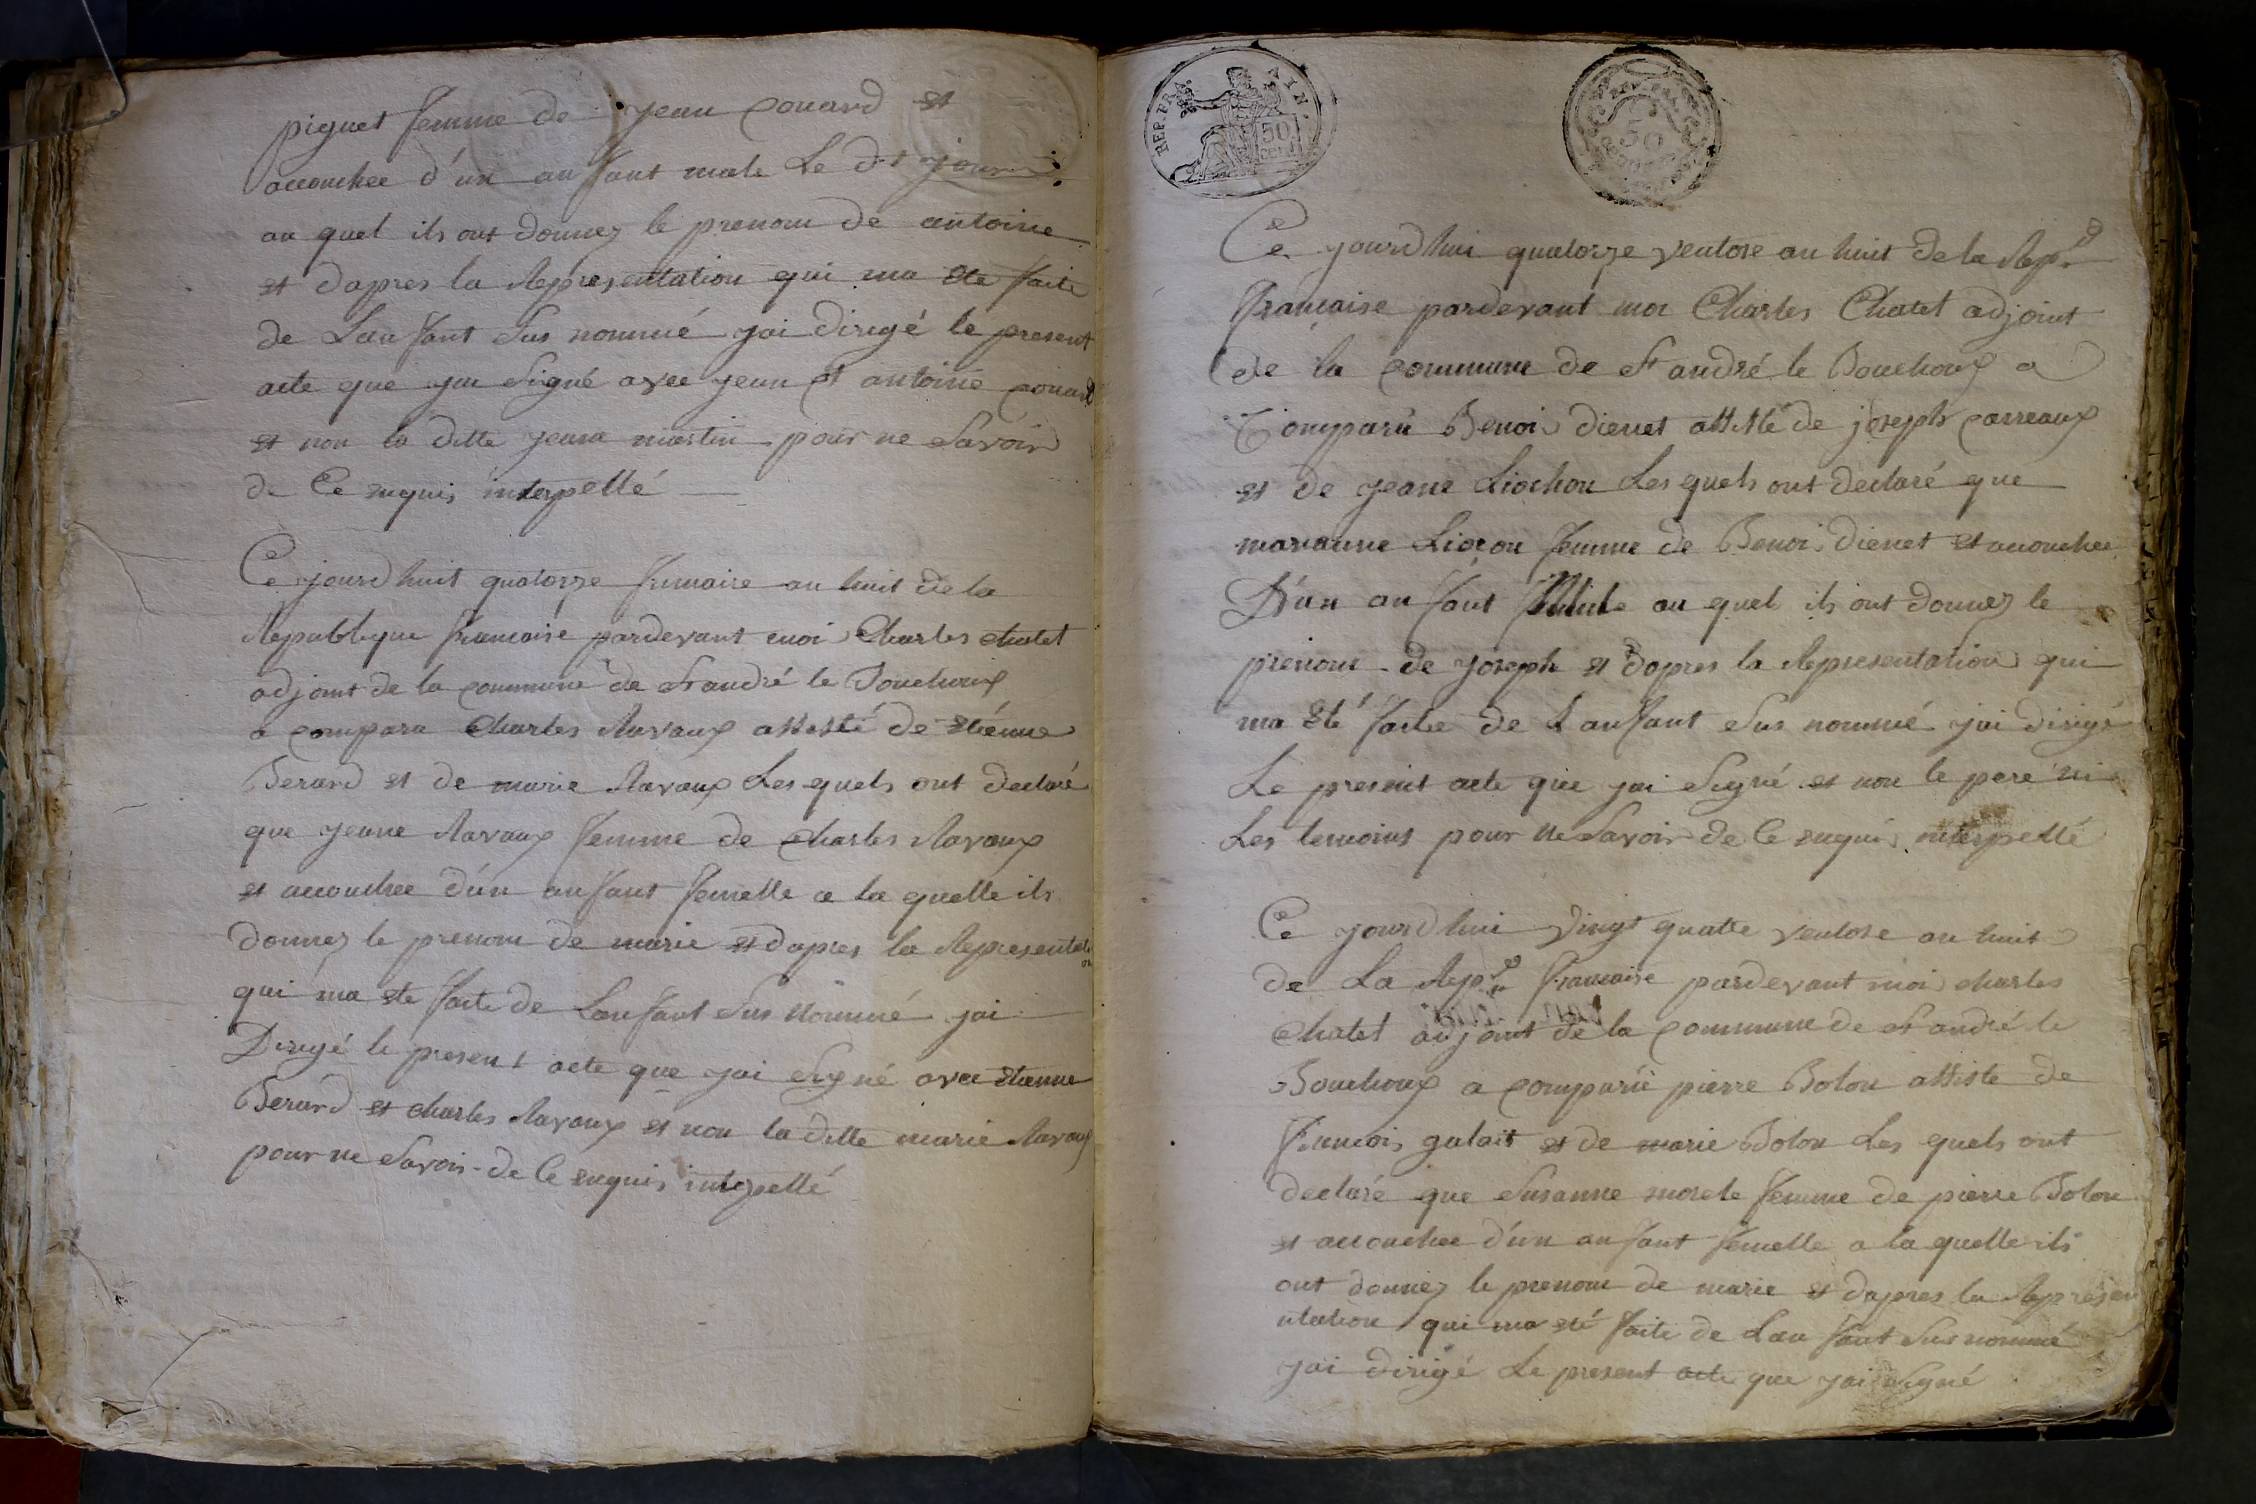 piquet femme de jean couard et
accouchee d'un anfant male Le dt jour
au quel ils ont donnez le prenom de antoine
et dapres la Representation qui ma ete faite
de Lanfant sus nommé jai dirigé le present
acte que jai signé avec jean et antoine couard
et non la ditte jeana martin pour ne savoir
de Ce enquis interpellé
Ce jourdhuit quatorze frimaire an huit de la
Republique francaise pardevant moi Charles chatel
adjoint de la commune de St andré le Bouchoux
a comparu Charles Ravaux assisté de etienne
Berard et de marie Ravaux Les quels ont declaré
que jeane Ravaux femme de charles Ravaux
et accouchee d'un anfant femelle a la quelle ils
donnez le prenom de marie et dapres la Representation
qui ma ete faite de Lanfant sus nommé jai
Dirigé le present acte que jai signé avec etienne
Berard et charles Ravaux et non la ditte marie Ravaux
pour ne savoir de Ce enquis interpellé
REP. FRA. 50 cen.
50
Ce jourdhui quatorze ventose an huit de la Rep.
francaise pardevant moi Charles Chatel adjoint
de la commune de St andré le Bouchoux a
Comparu Benoi dienet assisté de joseph carreaux
et de jeane Liochon Les quels ont declaré que
marianne Liocon femme de Benoi dienet et accouchee
D'un anfant au quel ils ont donnez le
prenom de joseph et dapres la Representation qui
ma eté faitee de Lanfant sus nommé jai dirigé
Le present acte que jai signé et non le pere ni
Les temoins pour ne savoir de Ce enquis interpellé
Ce jourdhui vingt quatte ventose an huit
de La Rep francaise pardevant moi charles
Chatel adjoint de la commune de St andré le
Bouchoux a comparu pierre Bolon assiste de
francois galait et de marie Bolon Les quels ont
declaré que susanne morele femme de pierre Bolon
et accouchee d'un anfant femelle a la quelle ils
ont donnez le prenom de marie et dapres la Represen
ntation qui ma eté faite de Lanfant sus nommé
jai dirigé Le present acte que jai signé